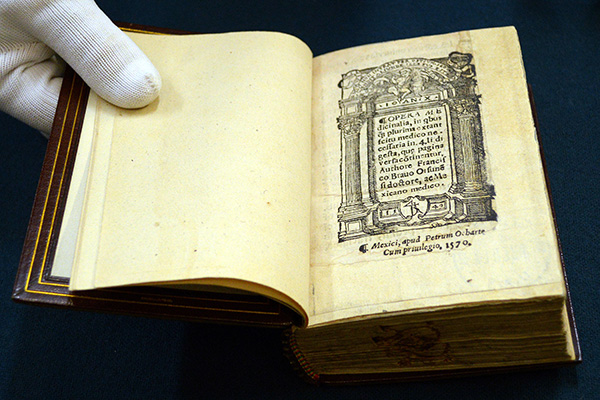 ¶OPERA ME
dicinalia, in qbus
q̃ plurima extant
scitu medico ne-
cessaria in .4. li di
gesta, quę pagina
versa cōtinentur,
Authore Francis
co Brauo Orsunẽ
si doctore, ac Me
xicano medico.
¶ Mexici, apud Petrum Ocharte
Cum priuilegio, 1570.